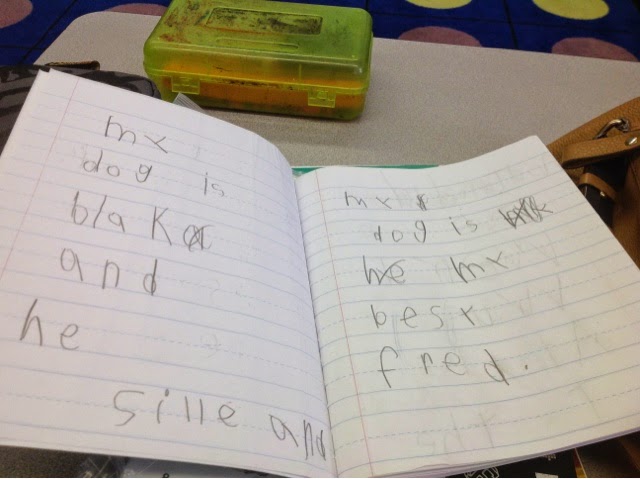 my
dog is
blak
and
he
sille and
my
dog is
he my
best
fred.